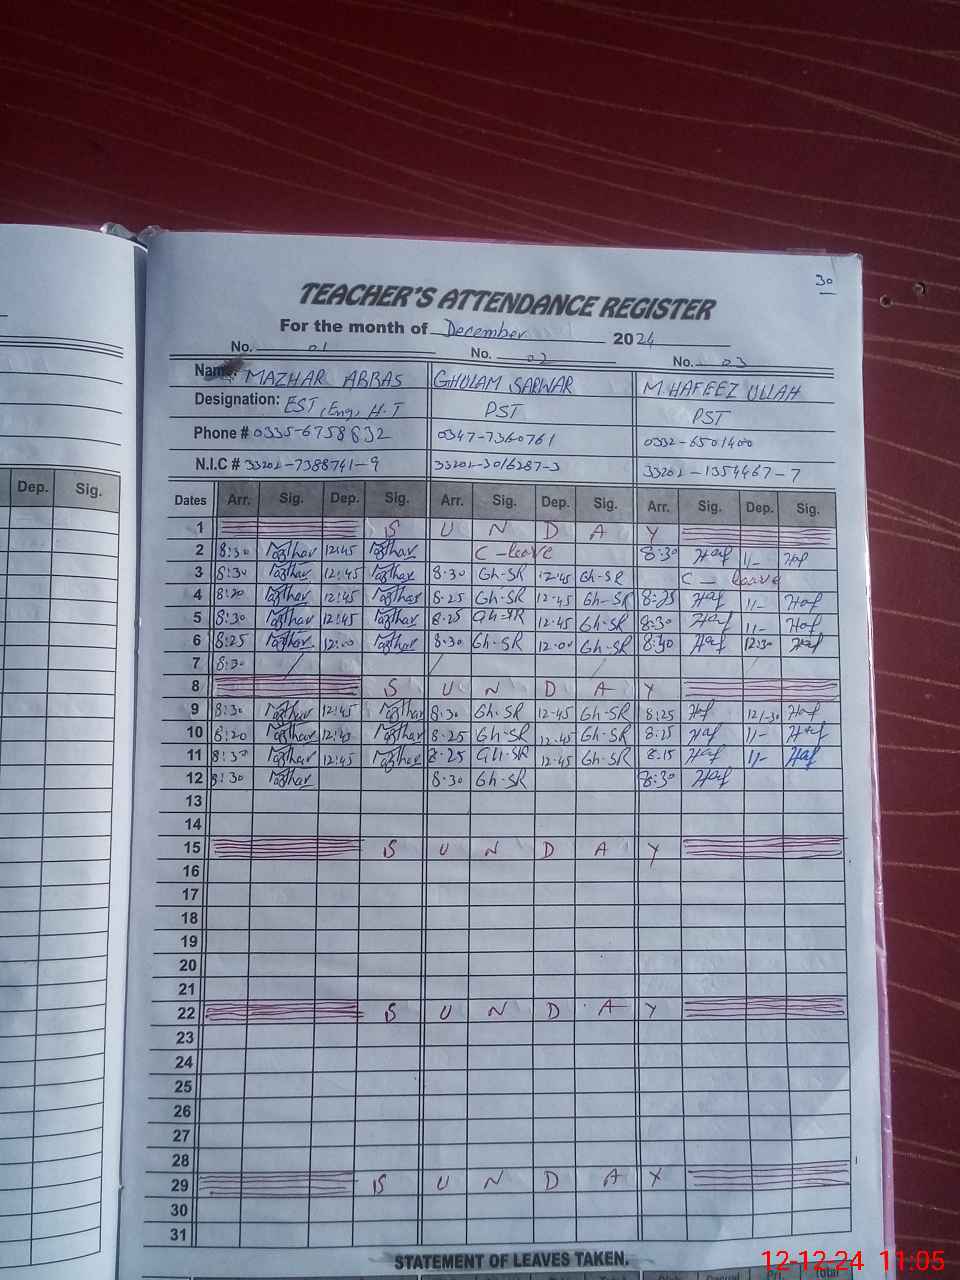 30
TEACHER'S ATTENDANCE REGISTER
For the month of December 2024
No. 01 No. 02 No. 03
Name: MAZHAR ABBAS GHULAM SARWAR M. HAFEEZ ULLAH
Designation: EST, Eng, H.T PST PST
Phone # 0335-6758632 0347-7360761 0332-6501400
N.I.C # 33201-7388741-9 33201-3016287-3 33201-1354467-7
Dep. Sig. Dates Arr. Sig. Dep. Sig. Arr. Sig. Dep. Sig. Arr. Sig. Dep. Sig.
1 S U N D A Y
2 8:30 Mazhar 12:45 Mazhar C-leave 8:30 Haf 11- Haf
3 8:30 Mazhar 12:45 Mazhar 8-30 Gh-SR 12-45 Gh-SR C-leave
4 8:20 Mazhar 12:45 Mazhar 8-25 Gh-SR 12-45 Gh-SR 8:25 Haf 11- Haf
5 8:30 Mazhar 12:45 Mazhar 8-25 Gh-SR 12-45 Gh-SR 8:30 Haf 11- Haf
6 8:25 Mazhar 12:00 Mazhar 8-30 Gh-SR 12-00 Gh-SR 8:30 Haf 12:30 Haf
7 8:30 / / /
8 S U N D A Y
9 8:30 Mazhar 12:45 Mazhar 8-30 Gh-SR 12-45 Gh-SR 8:25 Haf Haf
10 8:20 Mazhar Mazhar 8-25 Gh-SR 12-45 Gh-SR 8:15 Haf 11- Haf
11 8:30 Mazhar 12:45 Mazhar 8-25 Gh-SR 12-45 Gh-SR 8:15 Haf 11- Haf
12 8:30 Mazhar 8-30 Gh-SR 8:30 Haf
13
14
15 S U N D A Y
16
17
18
19
20
21
22 S U N D A Y
23
24
25
26
27
28
29 S U N D A Y
30
31
STATEMENT OF LEAVES TAKEN.
12-12-24 11:05
Total